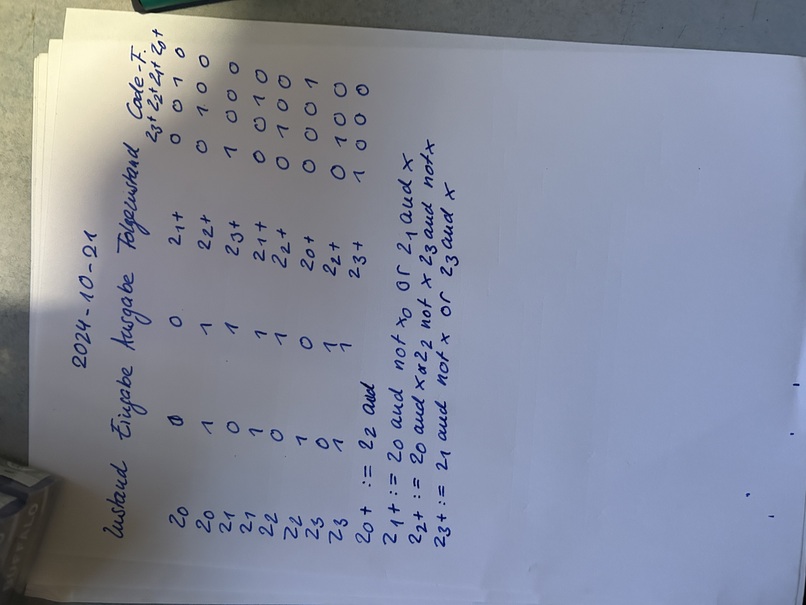 2024-10-21
Zustand Eingabe Ausgabe Folgezustand Code-F.
z3+ z2+ z1+ z0+
z0 0 0 z1+ 0 0 1 0
z0 1 1 z2+ 0 1 0 0
z1 0 1 z3+ 1 0 0 0
z1 1 1 z1+ 0 0 1 0
z2 0 1 z2+ 0 1 0 0
z2 1 0 z0+ 0 0 0 1
z3 0 1 z2+ 0 1 0 0
z3 1 1 z3+ 1 0 0 0
z0+ := z2 and
z1+ := z0 and not x or z1 and x
z2+ := z0 and x or z2 not x z3 and not x
z3+ := z1 and not x or z3 and x
BUFFALO